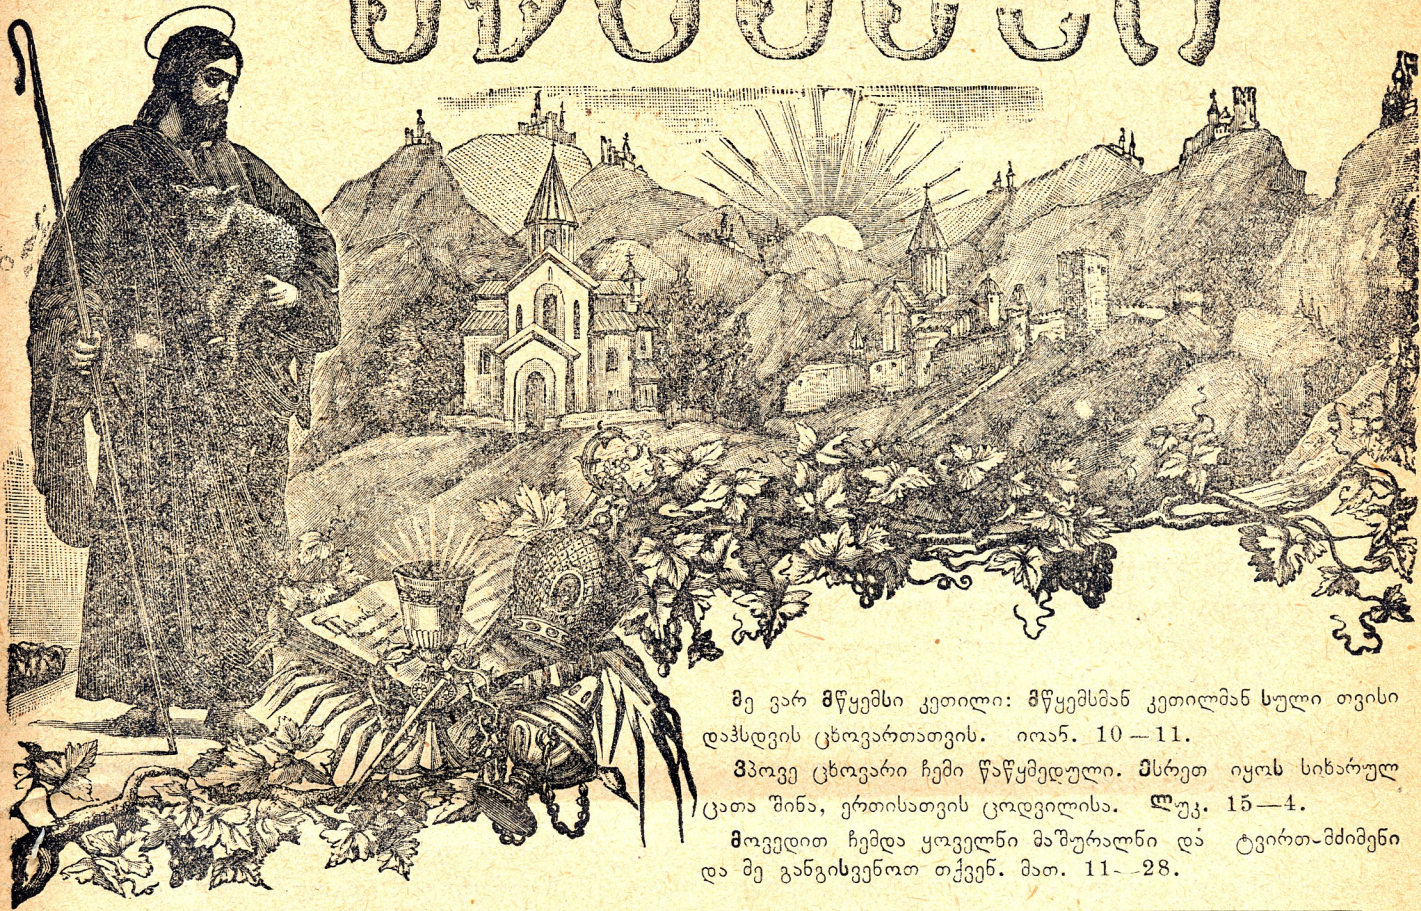 მე ვარ მწყემსი კეთილი: მწყემსმან კეთილმან სული თვისი
დაჰსდვის ცხოვართათვის. იოან. 10—11.
ვპოვე ცხოვარი ჩემი წაწყმედული. ესრეთ იყოს სიხარულ
ცათა შინა, ერთისათვის ცოდვილისა. ლუკ. 15—4.
მოვედით ჩემდა ყოველნი მაშურალნი და ტვირთ-მძიმენი
და მე განგისვენოთ თქვენ. მათ. 11--28.